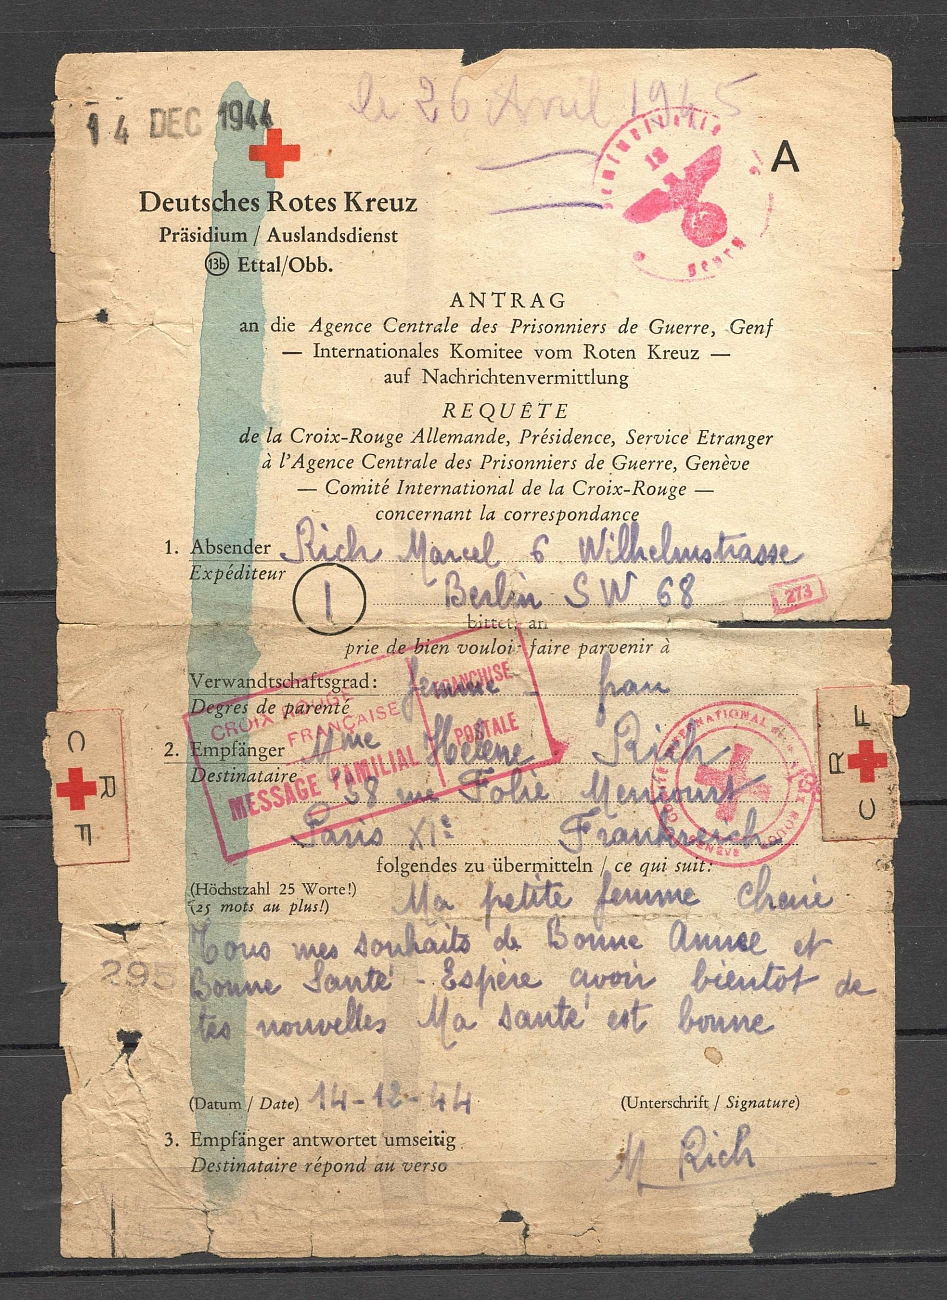 le 26 Avril 1945
14 DEC 1944
A
Deutsches Rotes Kreuz
Präsidium / Auslandsdienst
13b Ettal/Obb.
ANTRAG
an die Agence Centrale des Prisonniers de Guerre, Genf
— Internationales Komitee vom Roten Kreuz —
auf Nachrichtenvermittlung
REQUÊTE
de la Croix-Rouge Allemande, Présidence, Service Etranger
à l'Agence Centrale des Prisonniers de Guerre, Genève
— Comité International de la Croix-Rouge —
concernant la correspondance
1. Absender Rich Marcel 6 Wilhelmstrasse
Expéditeur
1 Berlin SW 68
273
bittet, an
prie de bien vouloir faire parvenir à
Verwandtschaftsgrad: femme - frau
Degres de parenté
CROIX ROUGE FRANÇAISE
MESSAGE FAMILIAL
FRANCHISE POSTALE
2. Empfänger Mme Hélène Rich
Destinataire 58 rue Folie Mericourt
Paris XIe Frankreich
COMITÉ INTERNATIONAL DE LA CROIX ROUGE GENÈVE
CRF
CRF
folgendes zu übermitteln / ce qui suit:
(Höchstzahl 25 Worte!)
(25 mots au plus!)
Ma petite femme cherie
Tous mes souhaits de Bonne Annee et
Bonne Santé - Espère avoir bientot de
tes nouvelles Ma santé est bonne
295
(Datum / Date) 14-12-44
(Unterschrift / Signature)
3. Empfänger antwortet umseitig
Destinataire répond au verso
M Rich